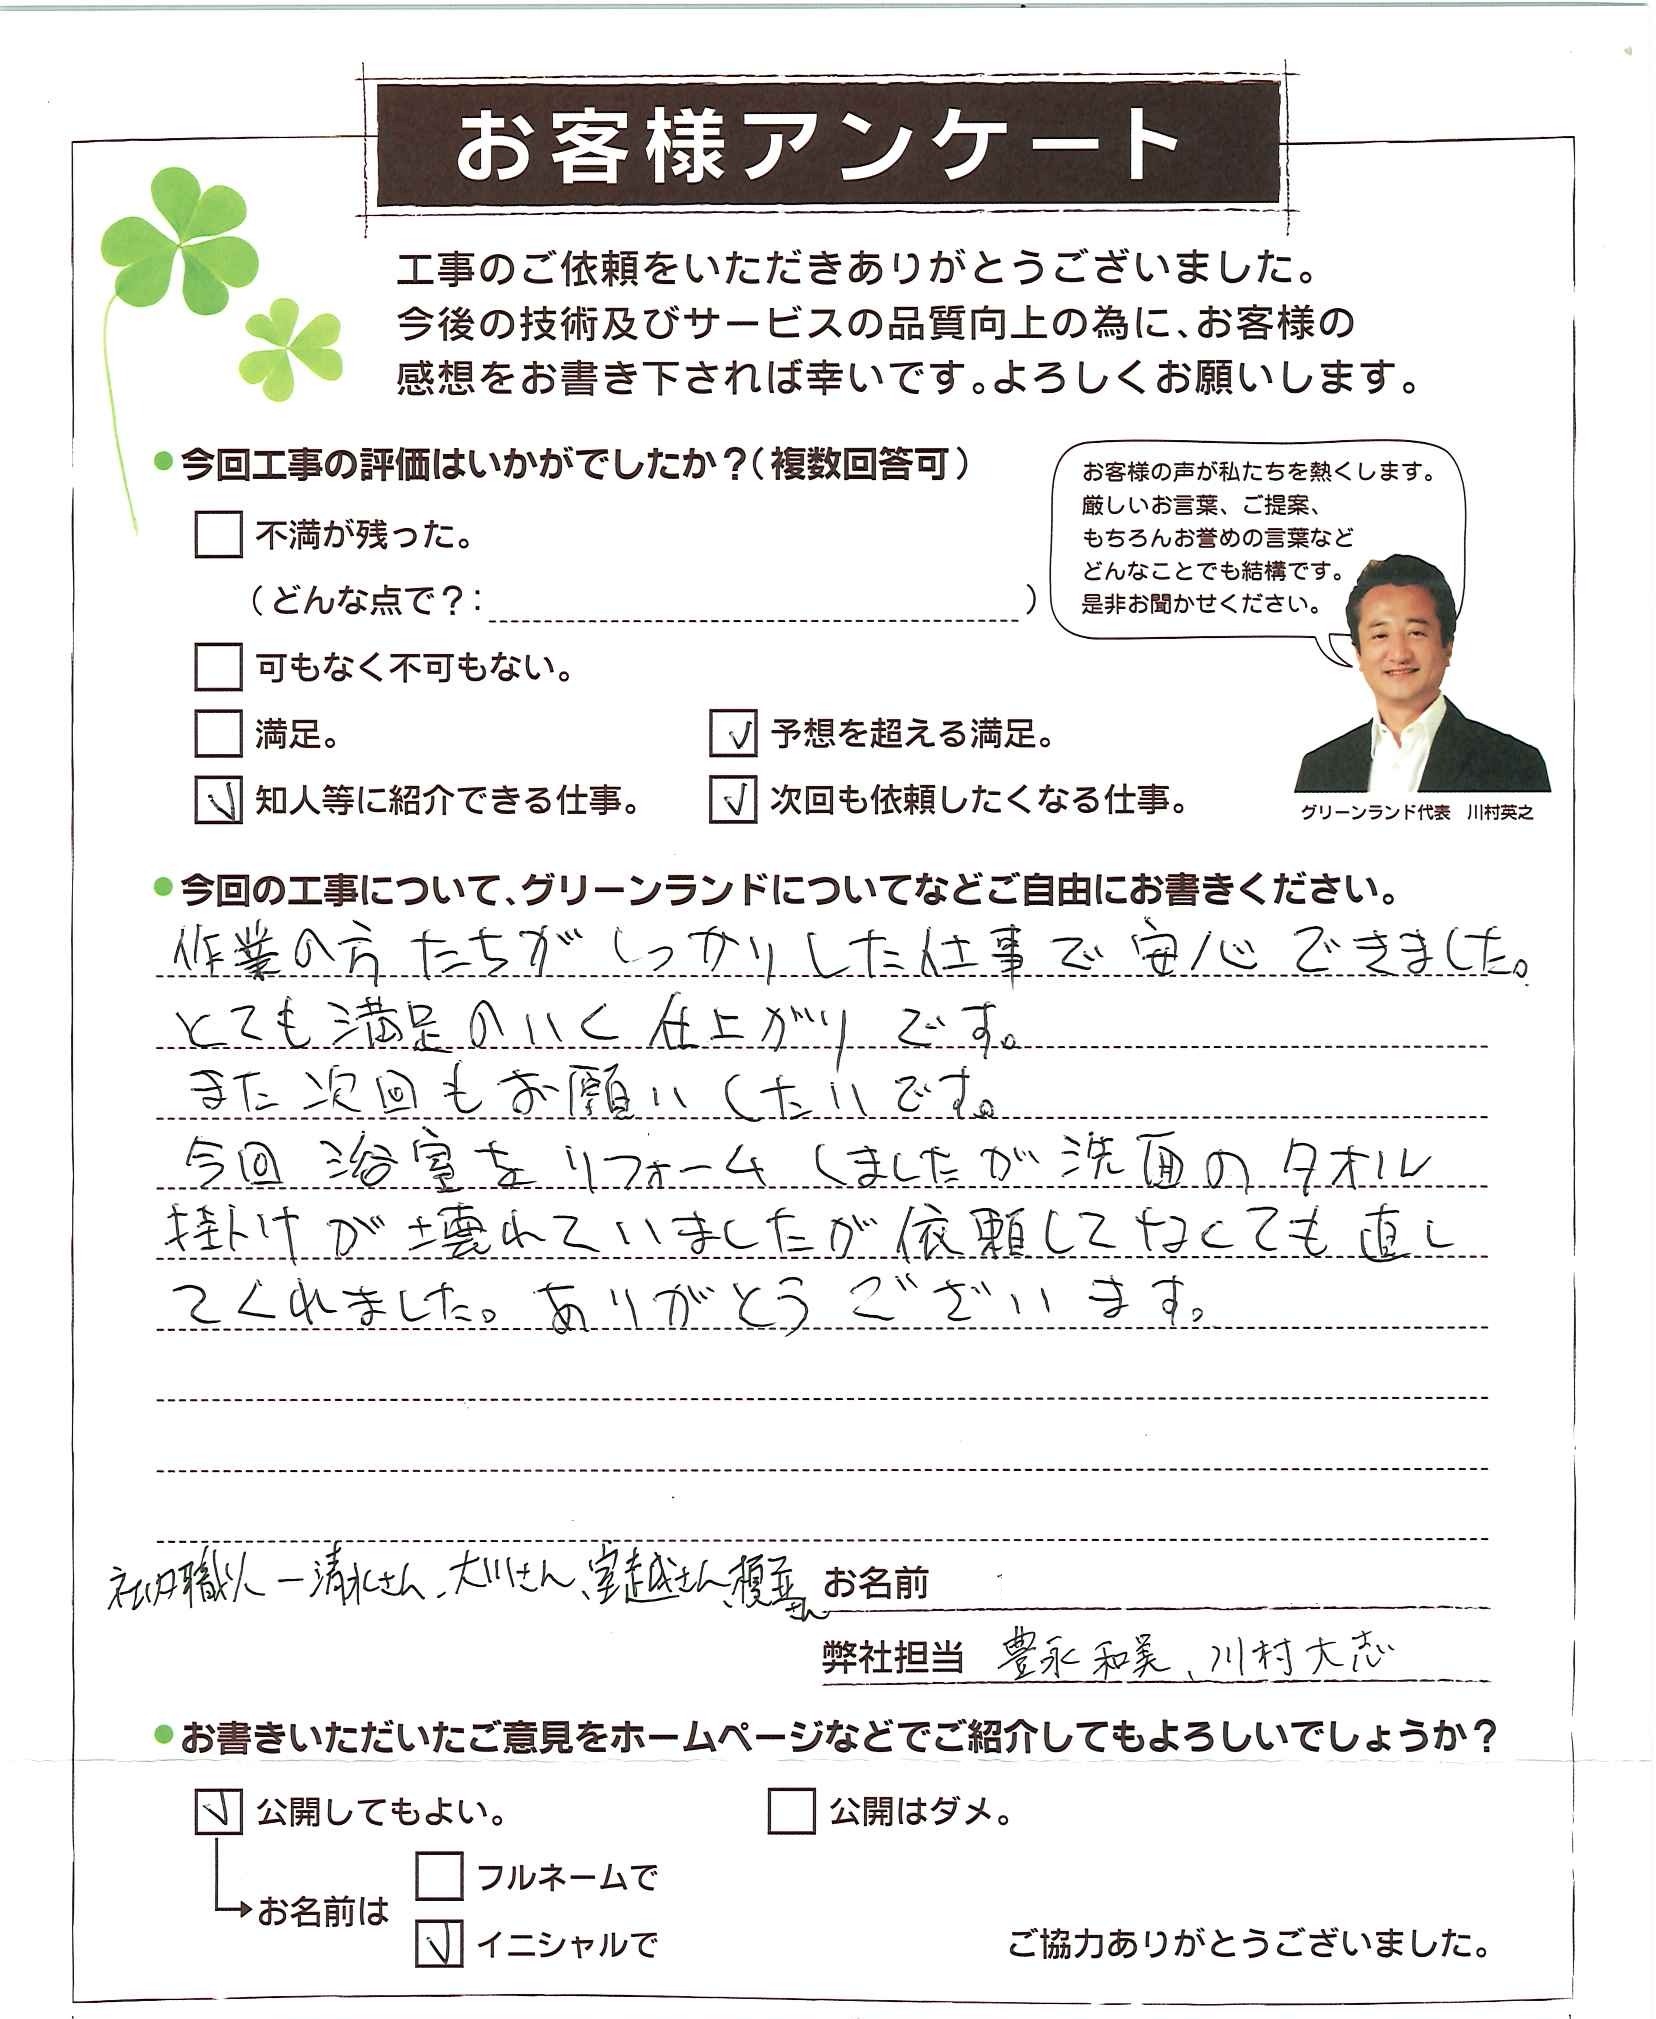 お客様アンケート
工事のご依頼をいただきありがとうございました。
今後の技術及びサービスの品質向上の為に、お客様の
感想をお書き下されば幸いです。よろしくお願いします。
今回工事の評価はいかがでしたか？（複数回答可）
不満が残った。
（どんな点で？：　）
可もなく不可もない。
満足。
予想を超える満足。
知人等に紹介できる仕事。
次回も依頼したくなる仕事。
お客様の声が私たちを熱くします。
厳しいお言葉、ご提案、
もちろんお誉めの言葉など
どんなことでも結構です。
是非お聞かせください。
グリーンランド代表　川村英之
今回の工事について、グリーンランドについてなどご自由にお書きください。
作業の方たちがしっかりした仕事で安心できました。
とても満足のいく仕上がりです。
また次回もお願いしたいです。
今回浴室をリフォームしましたが洗面のタオル
掛けが壊れていましたが依頼してなくても直し
てくれました。ありがとうございます。
社内職人ー清水さん、大川さん、室越さん、榎並さん
お名前
弊社担当　豊永和美、川村大志
お書きいただいたご意見をホームページなどでご紹介してもよろしいでしょうか？
公開してもよい。
公開はダメ。
お名前は
フルネームで
イニシャルで
ご協力ありがとうございました。